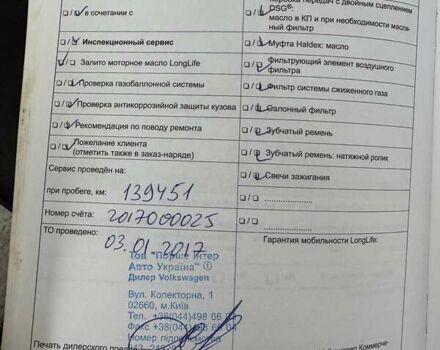 Коробка передач с двойным сцеплением
DSG®:
в сочетании с
масло в КП и при необходимости масля-
ный фильтр
Инспекционный сервис
Муфта Haldex: масло
Залито моторное масло LongLife
Фильтрующий элемент воздушного
фильтра
Проверка газобаллонной системы
Фильтр системы сжиженного газа
Проверка антикоррозийной защиты кузова
Салонный фильтр
Рекомендация по поводу ремонта
Зубчатый ремень
Пожелание клиента
(отметить также в заказ-наряде)
Зубчатый ремень: натяжной ролик
Сервис проведён на:
Свечи зажигания
при пробеге, км: 139451
Номер счёта: 2017000025
ТО проведено: 03.01.2017
Гарантия мобильности LongLife:
Тов "Порше Інтер
Авто Україна"
Дилер Volkswagen
Вул. Колекторна, 1
02660, м.Київ
Тел. +38(044)498 66 04
Факс +38(044)498 66 04
Номер підприємства
Печать дилерского